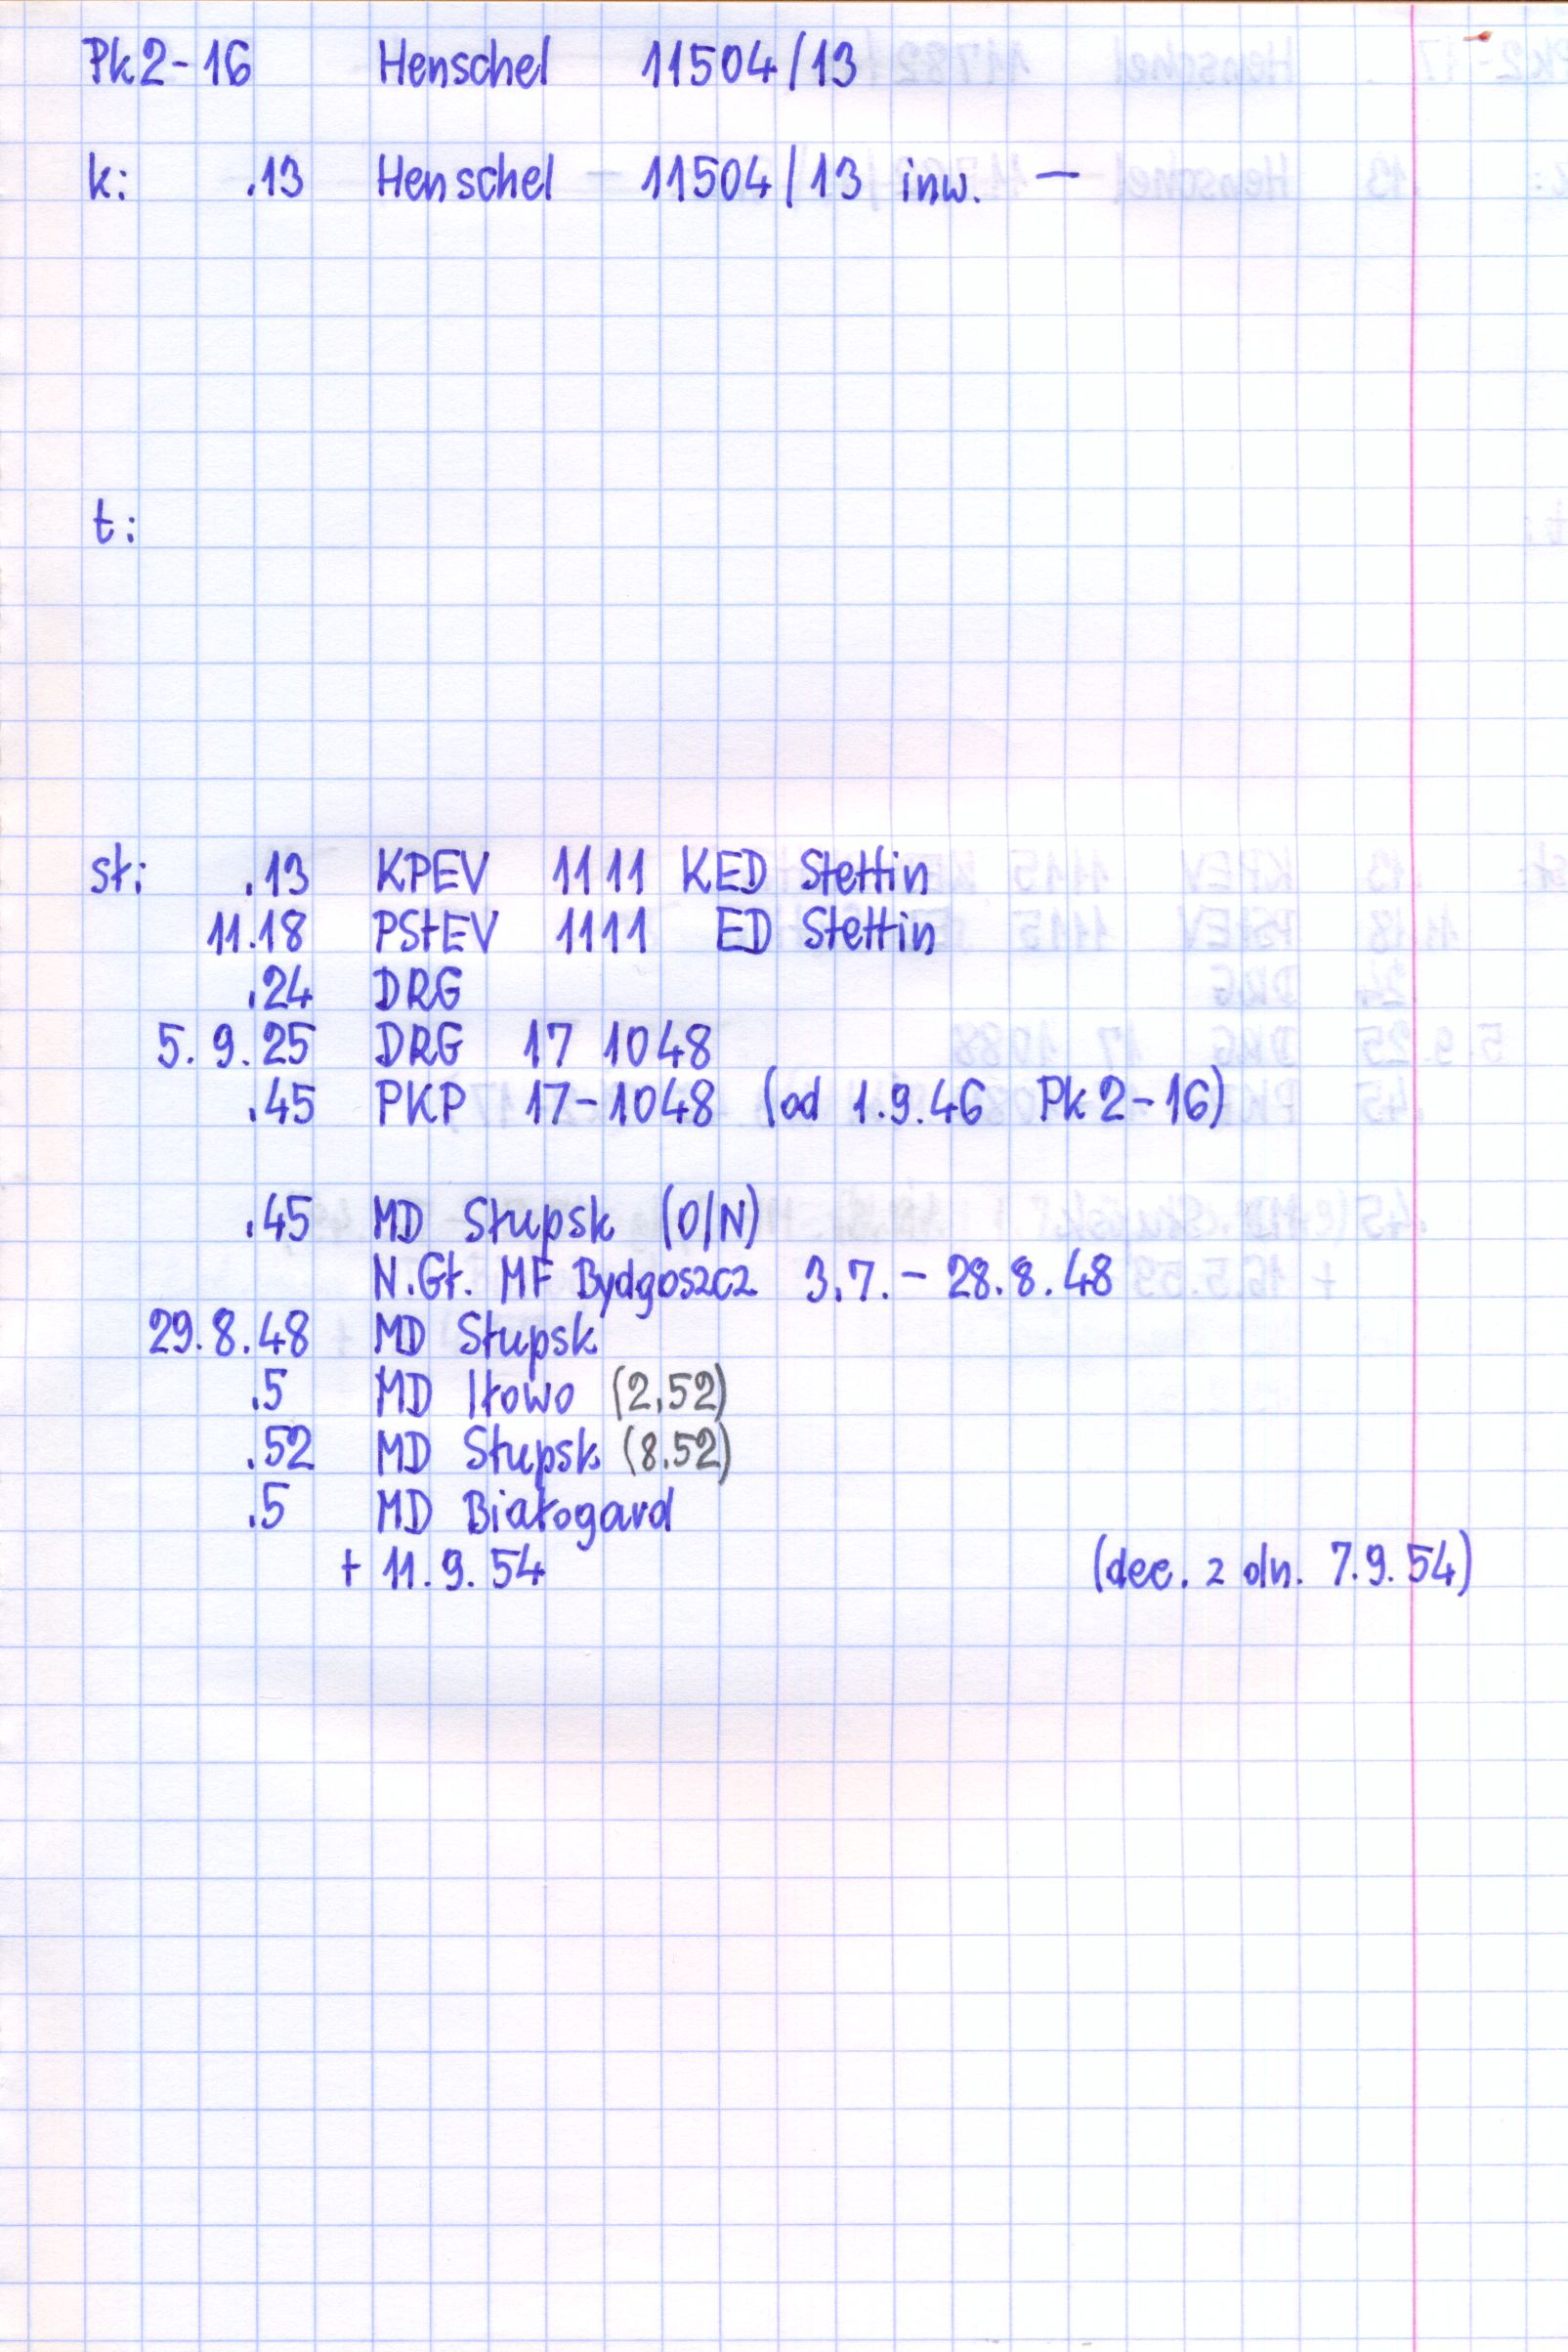 Pk2-16 Henschel 11504/13
k: .13 Henschel 11504/13 inw. —
t:
sł: .13 KPEV 1111 KED Stettin
11.18 PStEV 1111 ED Stettin
.24 DRG
5.9.25 DRG 17 1048
.45 PKP 17-1048 (od 1.9.46 Pk2-16)
.45 MD Słupsk (O/N)
N.Gł. MF Bydgoszcz 3.7.- 28.8.48
29.8.48 MD Słupsk
.5 MD Iłowo (2.52)
.52 MD Słupsk (8.52)
.5 MD Białogard
+ 11.9.54 (dec. z dn. 7.9.54)